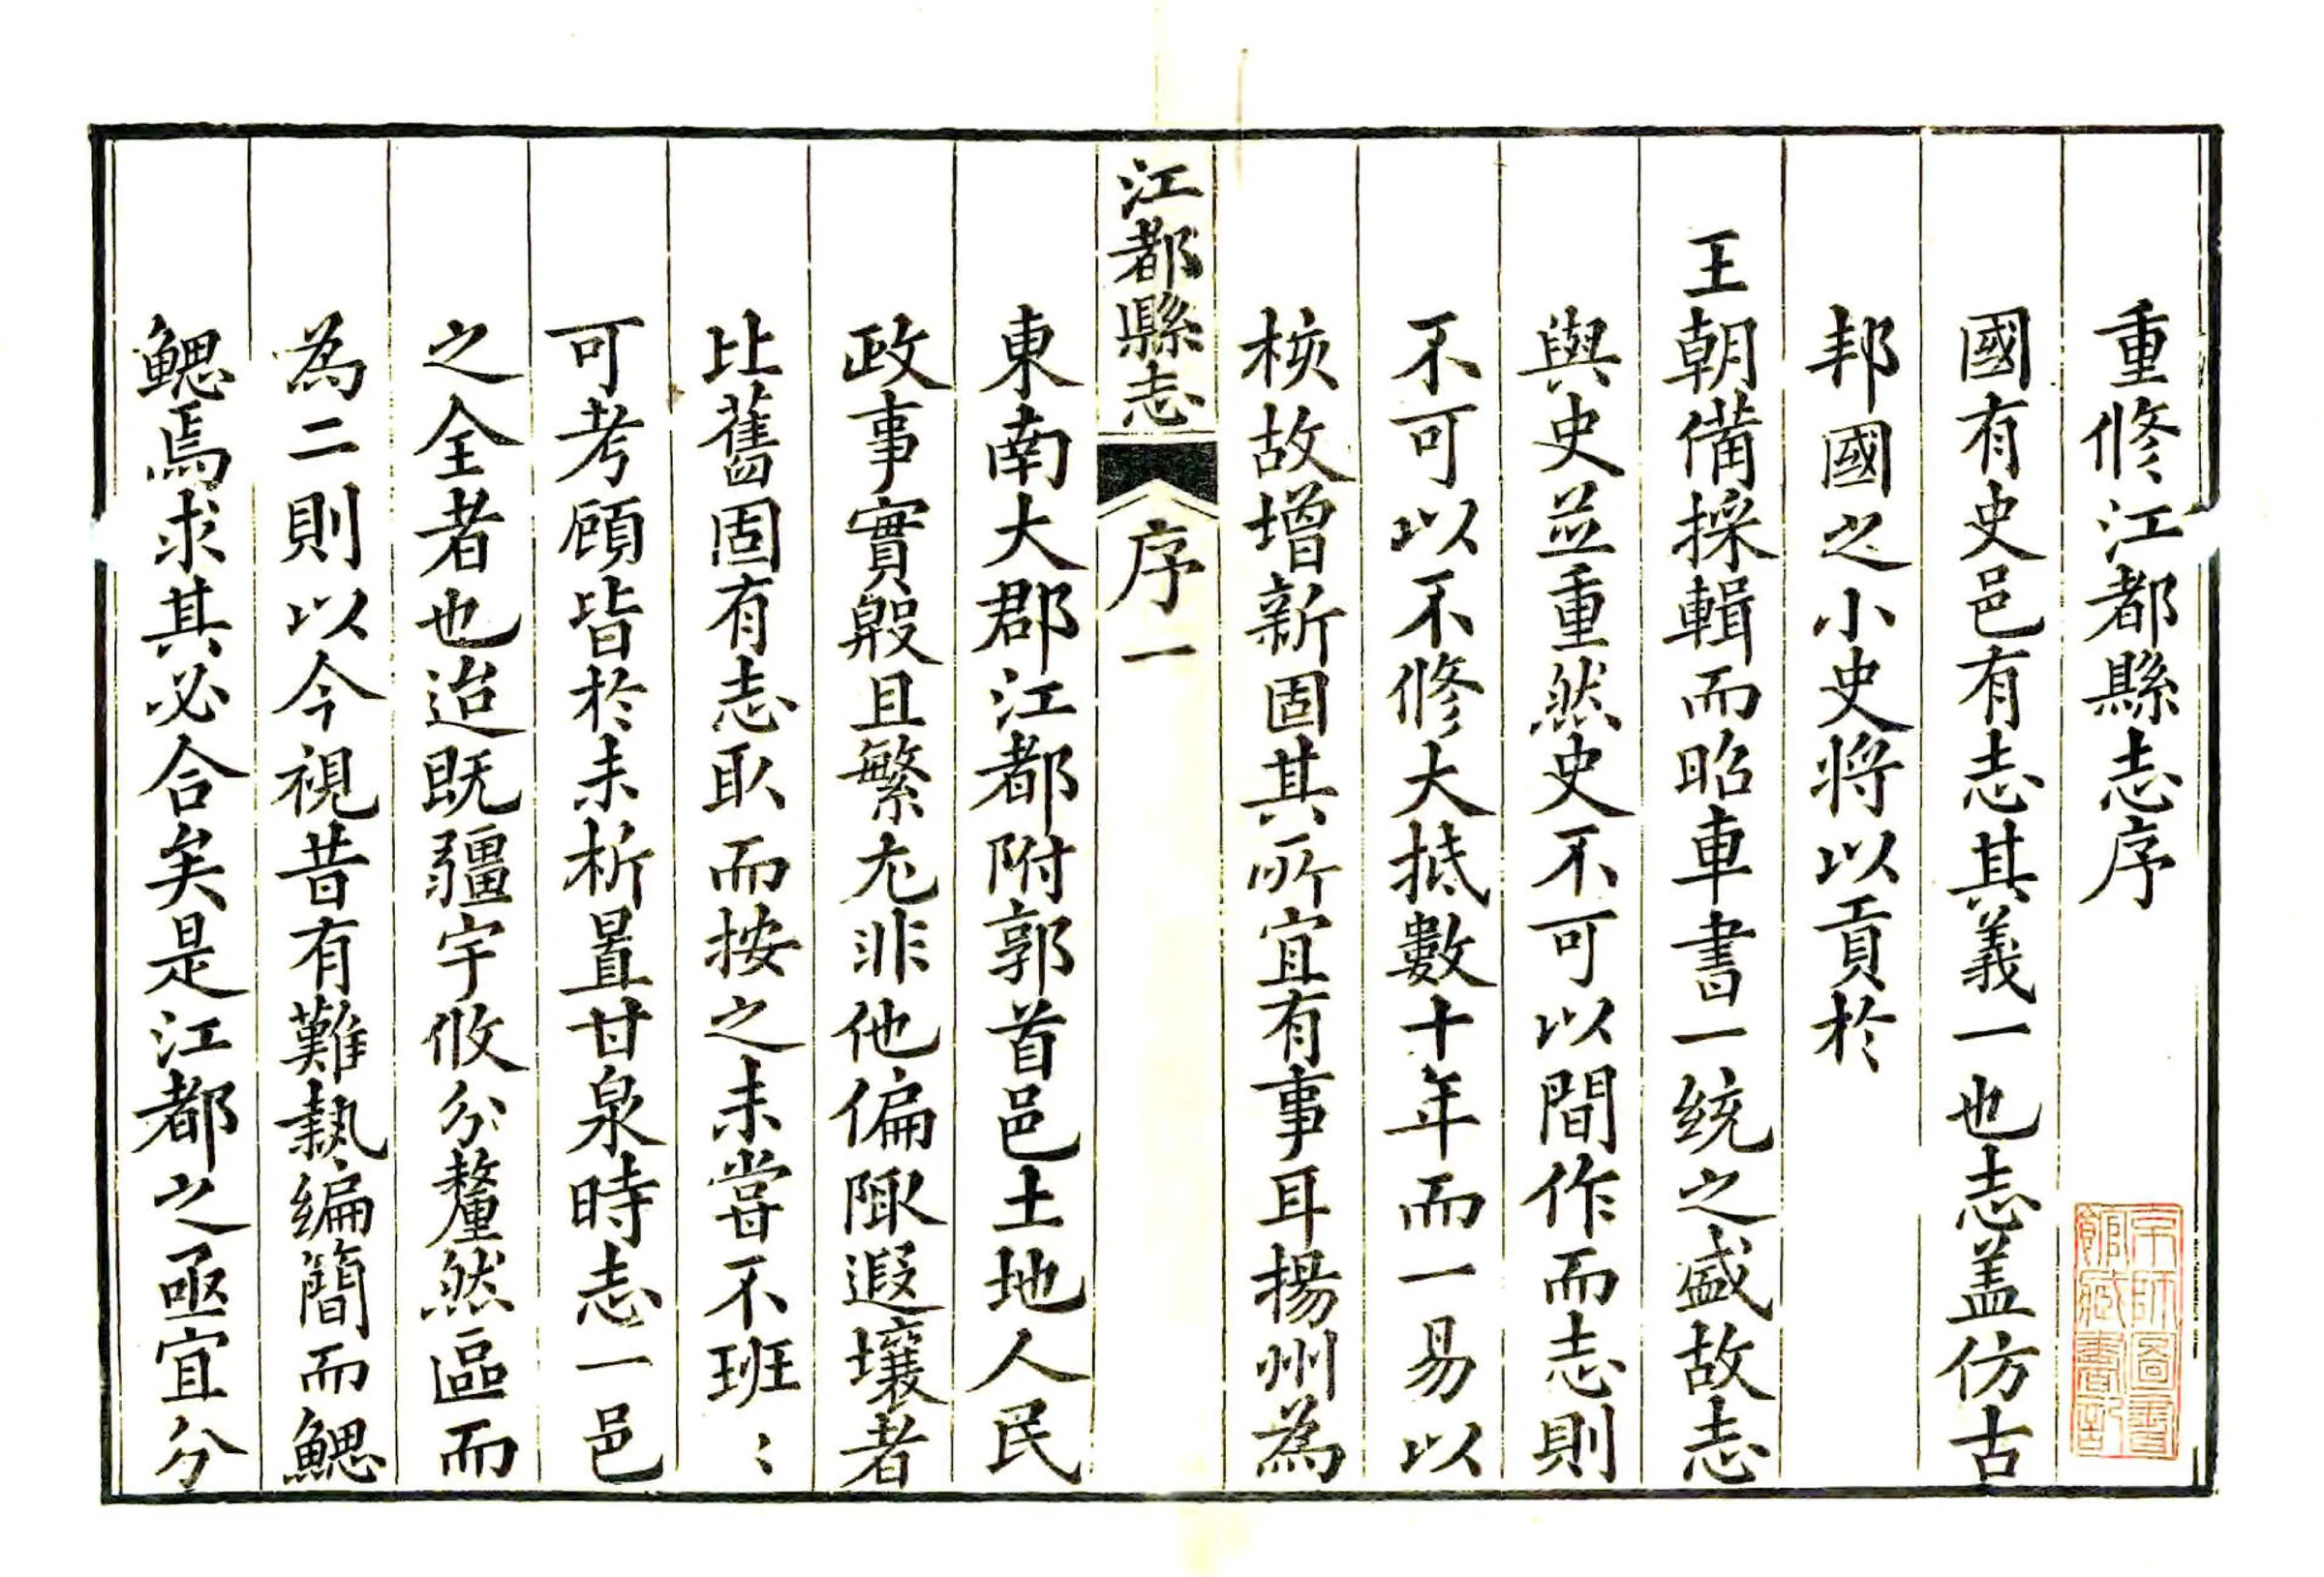 重修江都縣志序
國有史邑有志其義一也志盖仿古
邦國之小史将以貢於
王朝備採輯而昭車書一統之盛故志
與史並重然史不可以間作而志則
不可以不修大抵數十年而一易以
核故增新固其所宜有事耳揚州為
江都縣志
序一
東南大郡江都附郭首邑土地人民
政事實殷且繁尤非他偏陬遐壤者
比舊固有志取而按之未嘗不班〻
可考顧皆於未析置甘泉時志一邑
之全者也迨既疆宇攸分釐然區而
為二則以今視昔有難執編簡而鰓
鰓焉求其必合矣是江都之亟宜分
京師圖書
館藏書記